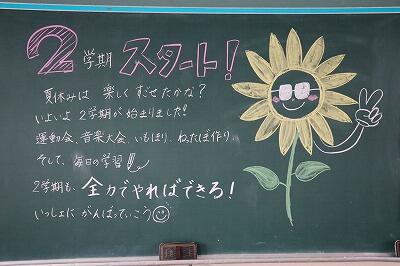 2学期 スタート!
夏休みは 楽しくすごせたかな?
いよいよ 2学期が 始まりました!
運動会、音楽大会、いもほり、ねったぼ作り、
そして、毎日の学習!!
2学期も、全力でやればできる!
いっしょに がんばっていこう